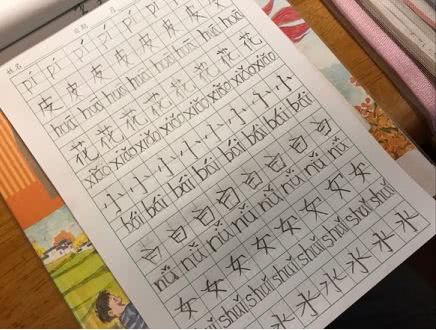 姓名
pí pí pí pí pí pí pí
皮 皮 皮 皮 皮 皮 皮 皮
huā huā huā huā huā huā huā huā
花 花 花 花 花 花 花 花
xiǎo xiǎo xiǎo xiǎo xiǎo xiǎo xiǎo xiǎo
小 小 小 小 小 小 小 小
bái bái bái bái bái bái bái bái
白 白 白 白 白 白 白 白
nǚ nǚ nǚ nǚ nǚ nǚ nǚ nǚ
女 女 女 女 女 女 女 女
shuǐ shuǐ shuǐ shuǐ shuǐ shuǐ shuǐ shuǐ
水 水 水 水 水 水